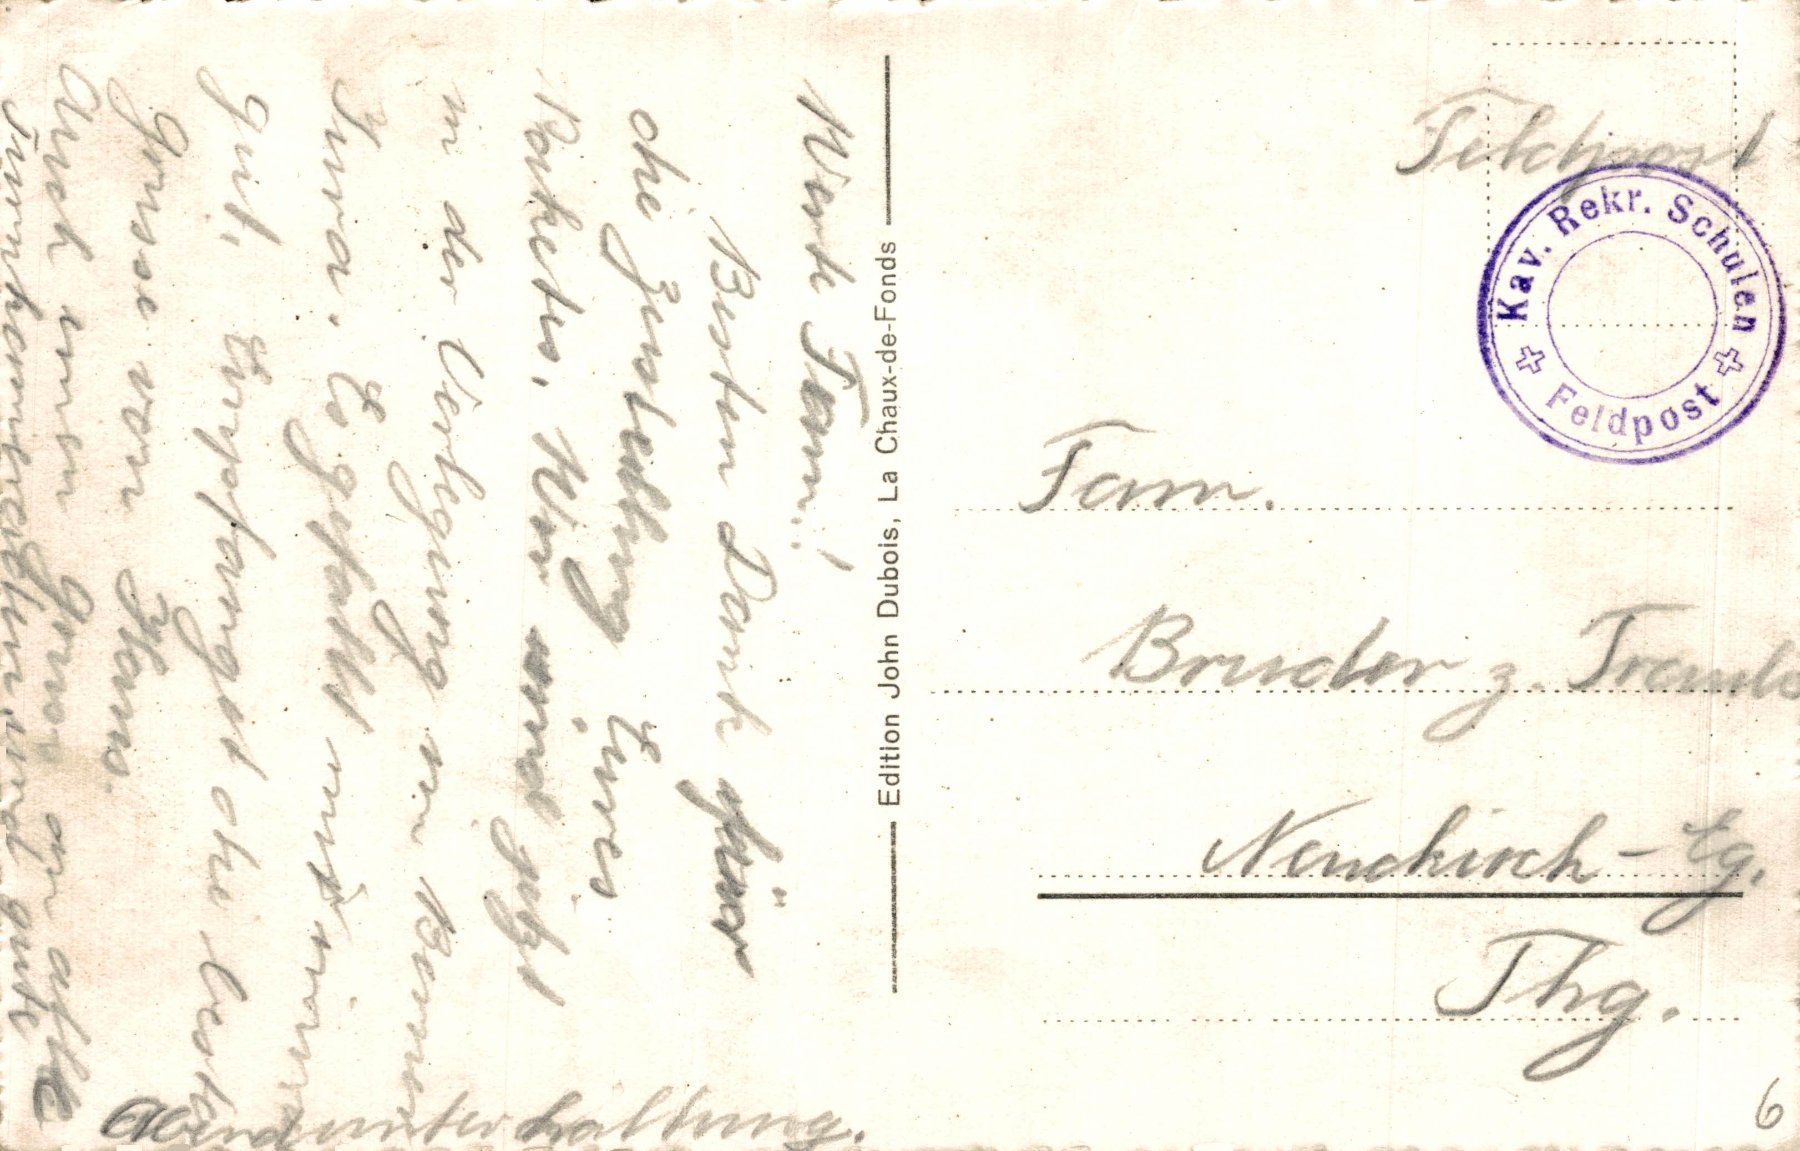 Werte Fam.!
Besten Dank für
die Zustellung Eures
Paketes. Wir sind jetzt
in der Verlegung im Berner
Jura. Es gefällt uns prima
gut. Empfangt die besten
Grüsse von Hans.
Auch einen Gruss an alle
und gute
Abendunterhaltung.
Edition John Dubois, La Chaux-de-Fonds
Feldpost
Kav. Rekr. Schulen
Feldpost
Fam.
Bruder z. Traube
Neukirch - Eg.
Thg.
6